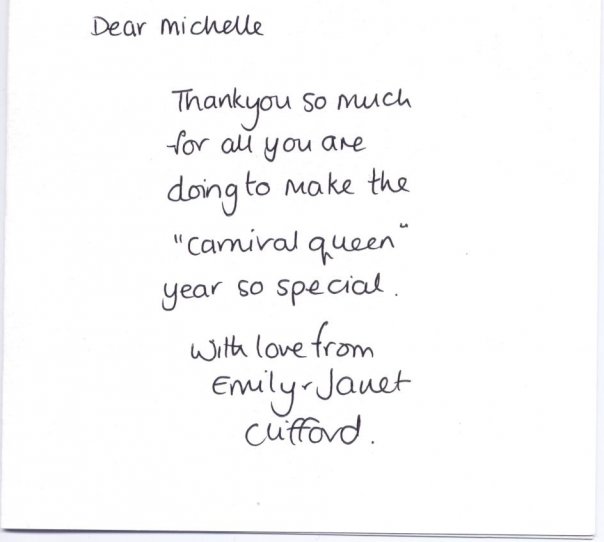 Dear Michelle
Thankyou so much
for all you are
doing to make the
"carnival queen"
year so special.
With love from
Emily + Janet
Clifford.